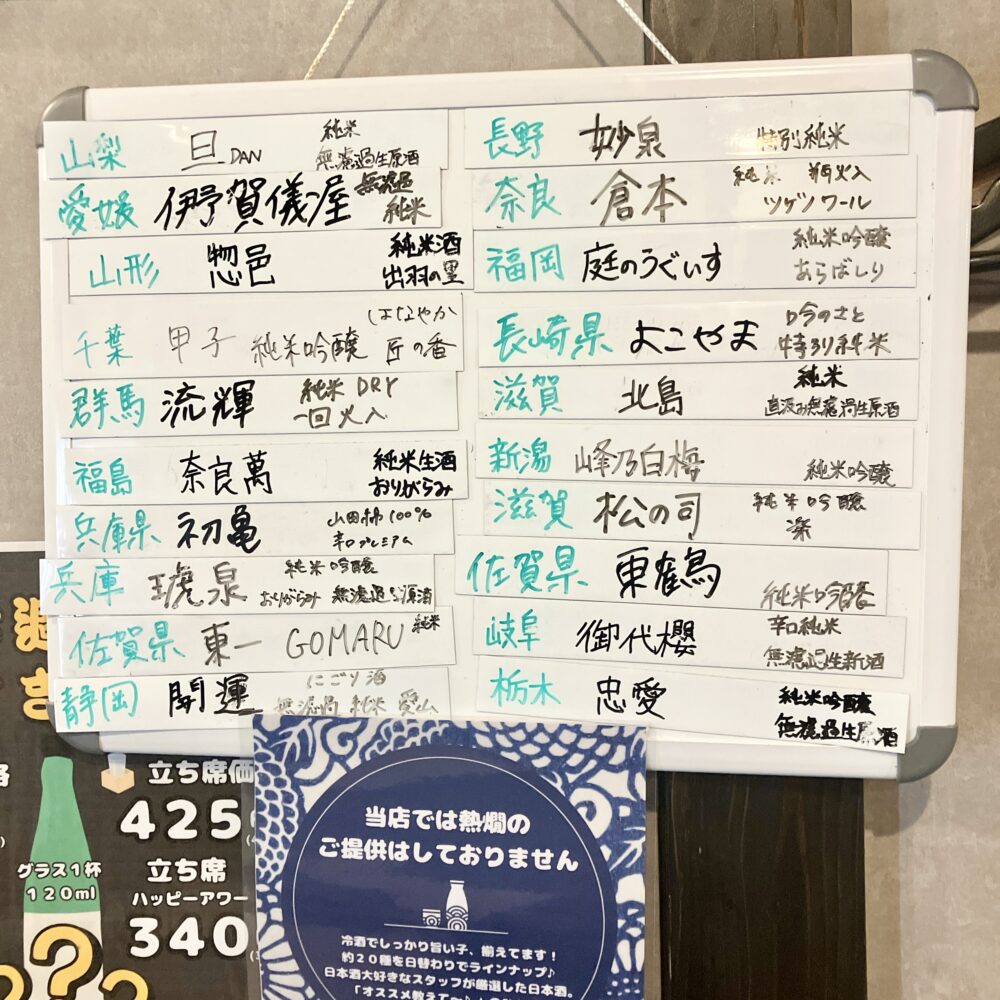 山梨 旦 DAN 純米
無濾過生原酒
愛媛 伊予賀儀屋 無濾過
純米
山形 惣邑 純米酒
出羽の里
千葉 甲子 純米吟醸 はなやか
匠の香
群馬 流輝 純米 DRY
一回火入
福島 奈良萬 純米生酒
おりがらみ
兵庫県 初亀 山田錦100%
辛口プレミアム
兵庫 琥泉 純米吟醸
おりがらみ 無濾過生原酒
佐賀県 東一 GOMARU 純米
静岡 開運 にごり酒
無濾過 純米 愛山
長野 妙泉 特別純米
奈良 倉本 純米 瓶火入
ツゲソワール
福岡 庭のうぐいす 純米吟醸
あらばしり
長崎県 よこやま 吟のさと
特別純米
滋賀 北島 純米
直汲み無濾過生原酒
新潟 峰乃白梅 純米吟醸
滋賀 松の司 純米吟醸
楽
佐賀県 東鶴 純米吟醸
岐阜 御代櫻 辛口純米
無濾過生新酒
栃木 忠愛 純米吟醸
無濾過生原酒
立ち席価
425
グラス1杯
120ml
立ち席
ハッピーアワー
340
???
当店では熱燗の
ご提供はしておりません
冷酒でしっかり旨い子、揃えてます!
約20種を日替わりでラインナップ♪
日本酒大好きなスタッフが厳選した日本酒。
「オススメ教えて〜♪」